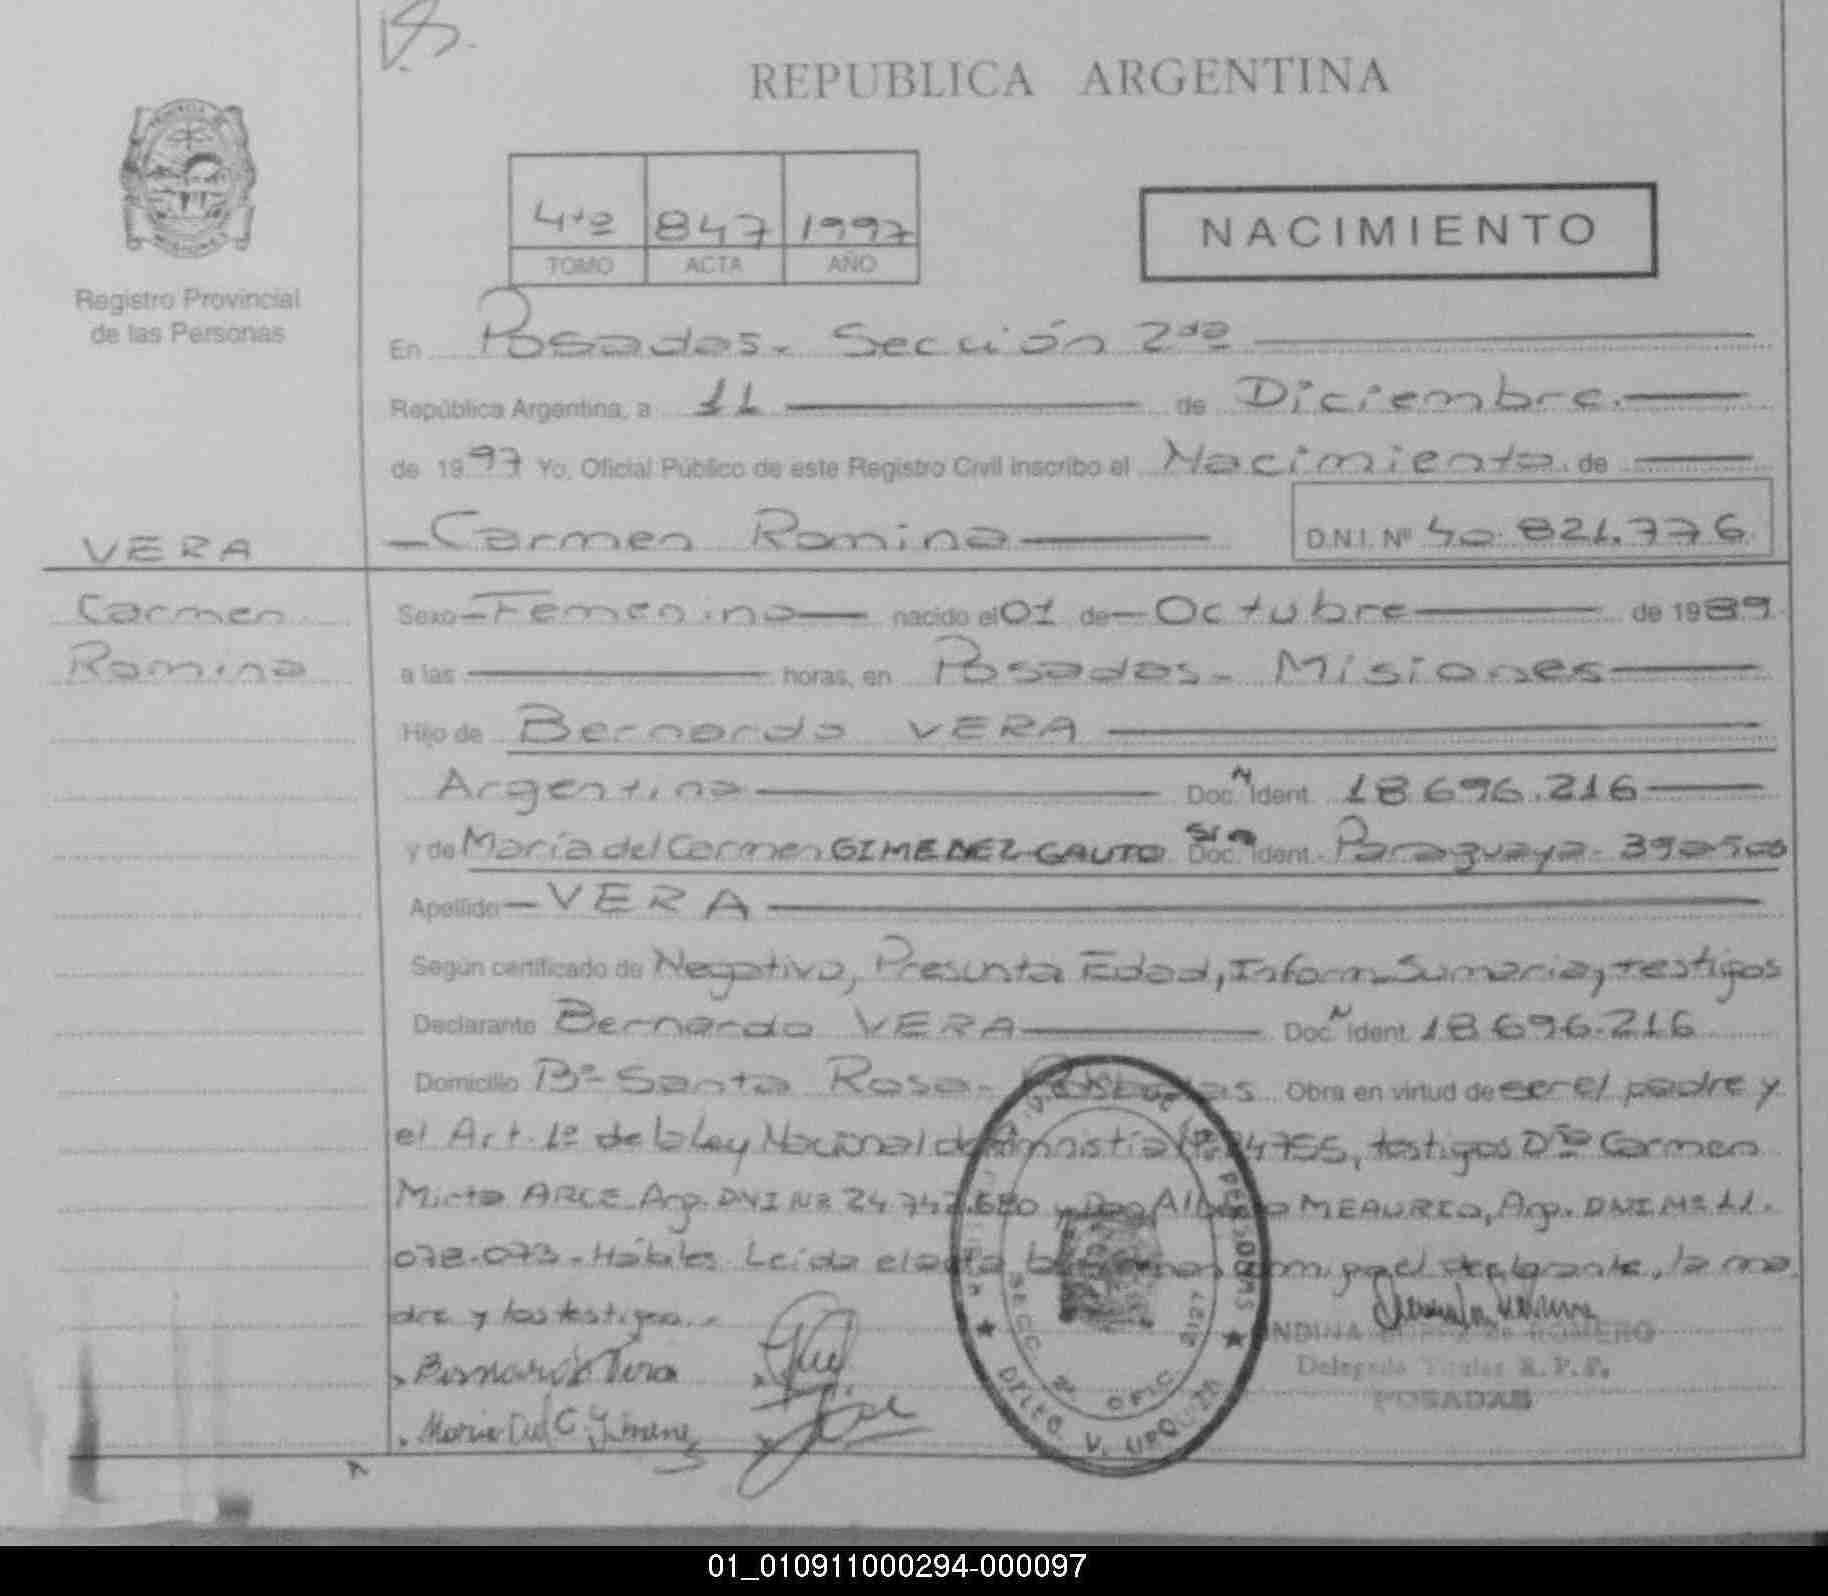 REPUBLICA ARGENTINA
4to 847 1997
TOMO ACTA AÑO
NACIMIENTO
Registro Provincial
de las Personas
En Posadas. Sección 2da
República Argentina, a 11 de Diciembre.
de 1997 Yo, Oficial Público de este Registro Civil inscribo el Nacimiento. de
VERA
Carmen Romina D.N.I. Nº 40.821.776
Carmen
Romina
Sexo Femenino nacido el 01 de Octubre de 1989
a las horas, en Posadas - Misiones
Hijo de Bernardo VERA
Argentina Doc. N Ident. 18.696.216
y de María del Carmen GIMENEZ GAUTO Doc. Ident. Paraguaya - 390500
Apellido VERA
Según certificado de Negativo, Presunta Edad, Inform. Sumaria, testigos
Declarante Bernardo VERA Doc. N Ident. 18.696.216
Domicilio Bº Santa Rosa - Posadas Obra en virtud de ser el padre y
el Art. 1º de la Ley Nacional de Amnistía Nº 24755, testigos Dña Carmen
Mirta ARCE Arg. DNI Nº 24.742.680 y Don Alberto MEAURIO, Arg. DNI Nº 11.
078.073 - Hábiles Leída el acta la firman conmigo el declarante, la ma
dre y los testigos.
Bernardo Vera
Maria Del C Gimenez
DE ROMERO
Delegada Titular R.P.P.
POSADAS
PERSONAS
SECC. 2ª OFIC.
DPTO. V. URQUIZA
01_010911000294-000097